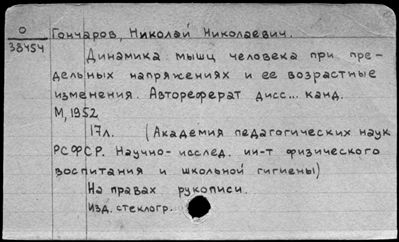 О
38454
Гончаров, Николай Николаевич.
Динамика мышц человека при пре-
дельных напряжениях и ее возрастные
изменения. Автореферат дисс... канд.
М, 1952
17л. (Академия педагогических наук
РСФСР. Научно-исслед. ин-т физического
воспитания и школьной гигиены)
На правах рукописи.
Изд. стеклогр.